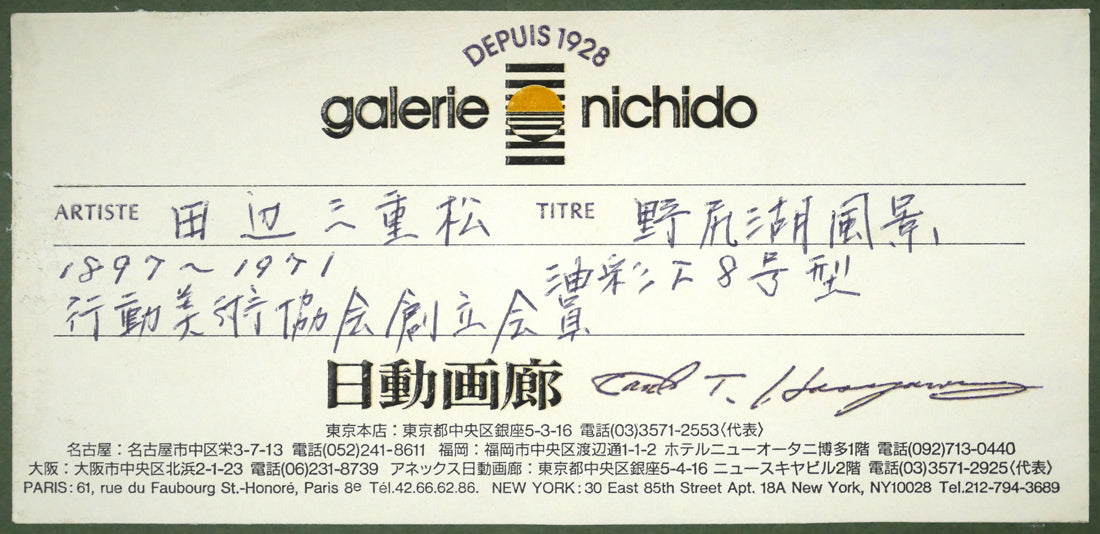 DEPUIS 1928
galerie nichido
ARTISTE 田辺三重松 TITRE 野尻湖風景
1897~1971 油彩F8号型
行動美術協会創立会員
日動画廊 T. Hasegawa
東京本店：東京都中央区銀座5-3-16 電話(03)3571-2553〈代表〉
名古屋：名古屋市中区栄3-7-13 電話(052)241-8611 福岡：福岡市中央区渡辺通1-1-2 ホテルニューオータニ博多1階 電話(092)713-0440
大阪：大阪市中央区北浜2-1-23 電話(06)231-8739 アネックス日動画廊：東京都中央区銀座5-4-16 ニュースキヤビル2階 電話(03)3571-2925〈代表〉
PARIS: 61, rue du Faubourg St.-Honoré, Paris 8e Tél.42.66.62.86. NEW YORK: 30 East 85th Street Apt. 18A New York, NY10028 Tel.212-794-3689